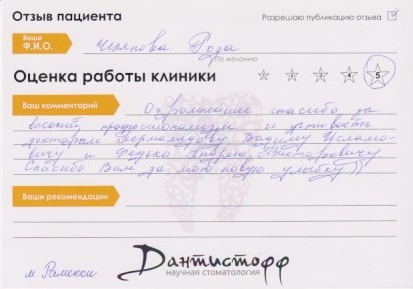 Отзыв пациента
Разрешаю публикацию отзыва
Ваше Ф.И.О.
Роза
По желанию
Оценка работы клиники
1 2 3 4 5
Ваш комментарий
Огромнейшее спасибо за
высокий профессионализм и чуткость
докторам Вадиму Исламо-
вичу и Федько Андрею Викторовичу
Спасибо Вам за мою новую улыбку ))
Ваши рекомендации
м. Раменки
Дантистофф
научная стоматология